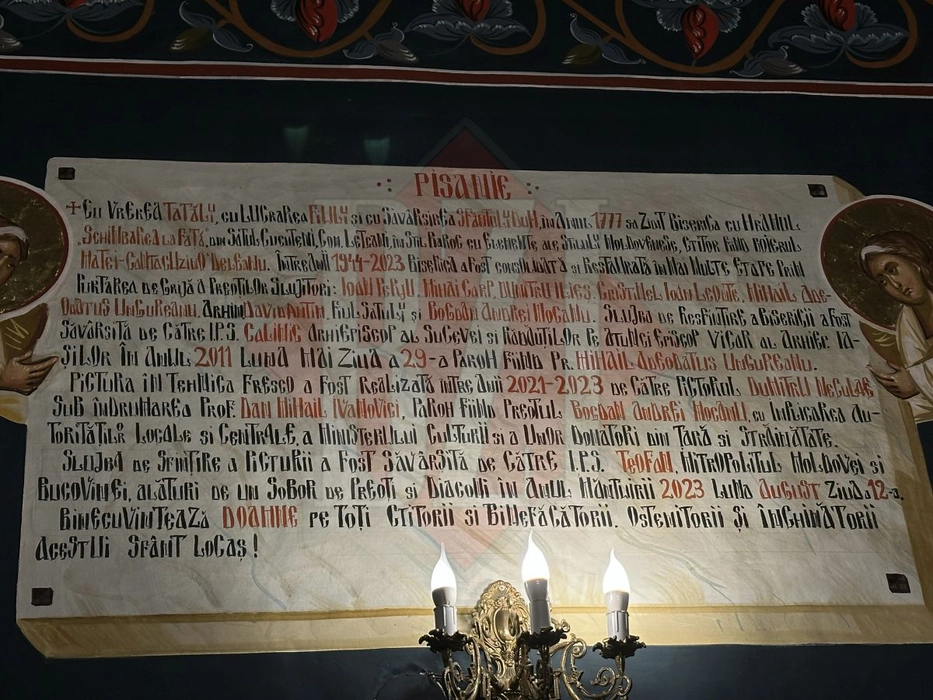 PISANIE
+ Cu vrerea Tatălui, cu lucrarea Fiului și cu săvârșirea Sfântului Duh, în anul 1777 s-a zidit biserica cu hramul
„Schimbarea la Față”, din satul Cucuteni, com. Lețcani, în stil baroc cu elemente ale stilului moldovenesc, ctitor fiind boierul
Matei-Cantacuzino Deleanu. Între anii 1944-2023 biserica a fost consolidată și restaurată în mai multe etape prin
purtarea de grijă a preoților slujitori: Ioan Perju, Mihai Carp, Dumitru Ilieș, Cristinel Ioan Leonte, Mihail Ade-
odatus Ungureanu, Arhim David Antim, fiul satului și Bogdan Andrei Mocanu. Slujba de resfințire a bisericii a fost
săvârșită de către I.P.S. Calinic Arhiepiscop al Sucevei și Rădăuților pe atunci episcop vicar al Arhiep. Ia-
șilor în anul 2011 luna mai ziua a 29-a paroh fiind pr. Mihail Adeodatus Ungureanu.
Pictura în tehnica fresco a fost realizată între anii 2021-2023 de către pictorul Dumitru Neculae
sub îndrumarea prof. Dan Mihail Ivanovici, paroh fiind preotul Bogdan Andrei Mocanu, cu implicarea au-
torităților locale și centrale, a Ministerului Culturii și a unor donatori din țară și străinătate.
Slujba de sfințire a picturii a fost săvârșită de către I.P.S. Teofan, Mitropolitul Moldovei și
Bucovinei, alături de un sobor de preoți și diaconi în anul mântuirii 2023 luna august ziua 12-a.
Binecuvintează Doamne pe toți ctitorii și binefăcătorii, ostenitorii și închinătorii
acestui sfânt locaș!